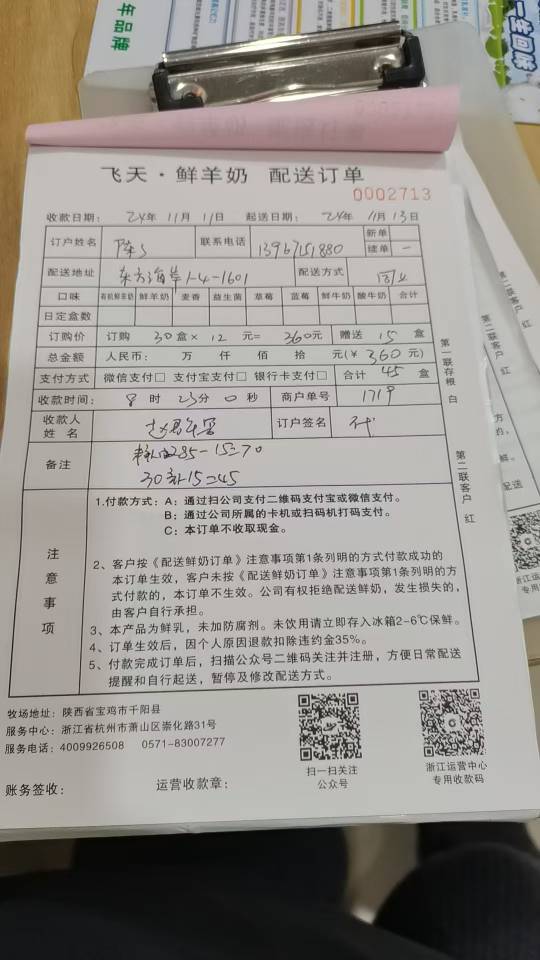 年品牌
一生回味
飞天·鲜羊奶 配送订单
0002713
收款日期： 24年 11月 11日 起送日期： 24年 11月 13日
订户姓名 联系电话 13967151880 新单
续单 一
配送地址 东方海岸1-4-1601 配送方式
口味 有机鲜羊奶 鲜羊奶 麦香 益生菌 草莓 蓝莓 鲜牛奶 酸牛奶 合计
日定盒数
订购价 订购 30 盒× 12 元= 360元 赠送 15 盒
总金额 人民币： 万 仟 佰 拾 元(￥ 360 元)
支付方式 微信支付□ 支付宝支付□ 银行卡支付□ 合计 45 盒
收款时间： 8 时 23分 0 秒 商户单号 1719
收款人姓名 订户签名 代
备注 85-15=70
30 15=45
第一联存根 白
第二联客户 红
注意事项
1.付款方式：A：通过扫公司支付二维码支付宝或微信支付。
B：通过公司所属的卡机或扫码机打码支付。
C：本订单不收取现金。
2、客户按《配送鲜奶订单》注意事项第1条列明的方式付款成功的
本订单生效，客户未按《配送鲜奶订单》注意事项第1条列明的方
式付款的，本订单不生效。公司有权拒绝配送鲜奶，发生损失的，
由客户自行承担。
3、本产品为鲜乳，未加防腐剂。未饮用请立即存入冰箱2-6℃保鲜。
4、订单生效后，因个人原因退款扣除违约金35%。
5、付款完成订单后，扫描公众号二维码关注并注册，方便日常配送
提醒和自行起送，暂停及修改配送方式。
牧场地址：陕西省宝鸡市千阳县
服务中心：浙江省杭州市萧山区崇化路31号
服务电话：4009926508 0571-83007277
扫一扫关注
公众号
浙江运营中心
专用收款码
账务签收： 运营收款章：
第二联客户 红